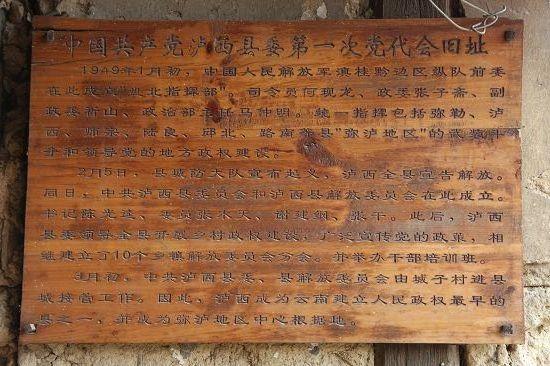 中国共产党泸西县委第一次党代会旧址
1949年1月初，中国人民解放军滇桂黔边区纵队前委
在此成立"盘北指挥部"。司令员何现龙、政委张子斋、副
政委祁山、政治部主任马仲明。统一指挥包括弥勒、泸
西、师宗、陆良、邱北、路南等县"弥泸地区"的武装斗
争和领导党的地方政权建设。
2月5日，县城防大队宣布起义，泸西全县宣告解放。
同日，中共泸西县委员会和泸西县解放委员会在此成立。
书记陈光逵、委员张木天、谢建纲、张干。此后，泸西
县委领导全县开展乡村政权建设，广泛宣传党的政策，相
继建立了10个乡镇解放委员会分会。并举办干部培训班。
月初，中共泸西县委、县解放委员会由城子村进县
城接管工作。因此，泸西成为云南建立人民政权最早的
县之一，并成为弥泸地区中心根据地。